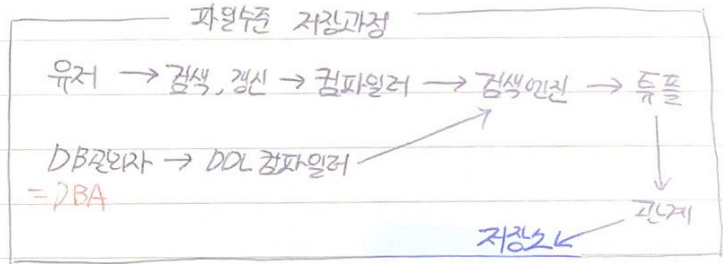 파일수준 저장과정
유저 → 검색, 갱신 → 컴파일러 → 검색엔진 → 튜플
DB관리자 → DDL 컴파일러
= DBA
관계
저장소